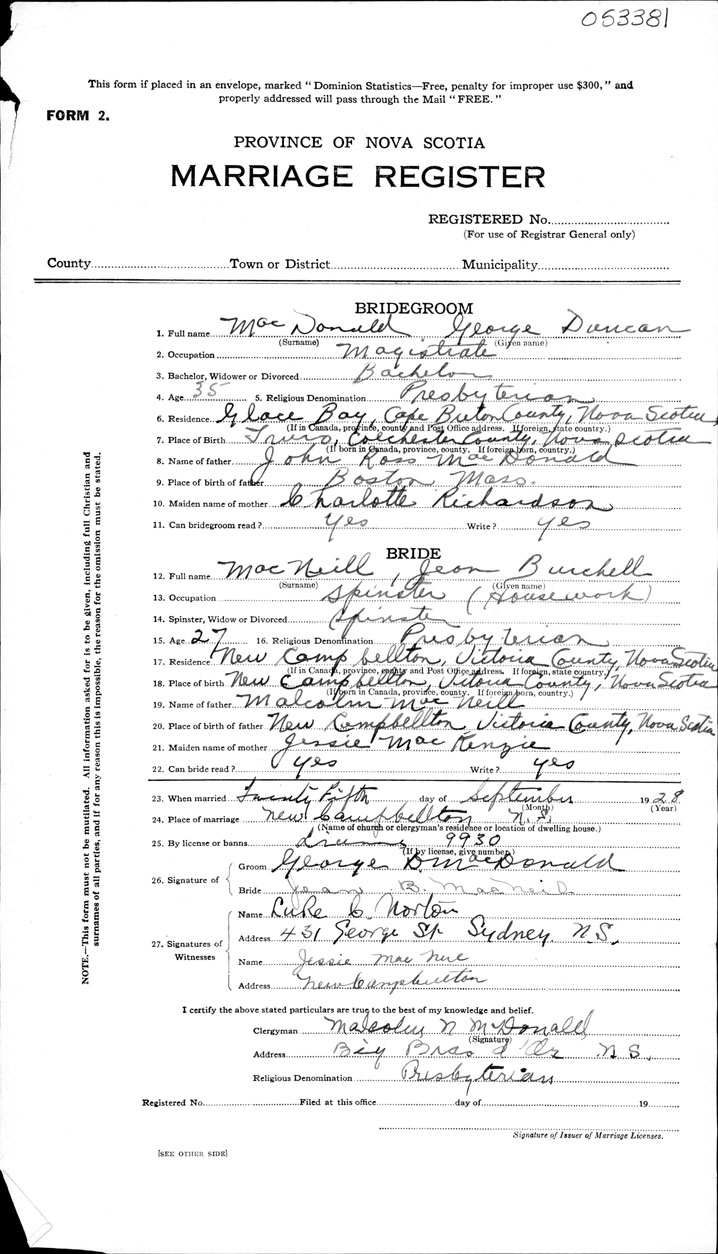 053381
This form if placed in an envelope, marked "Dominion Statistics—Free, penalty for improper use $300," and
properly addressed will pass through the Mail "FREE."
FORM 2.
PROVINCE OF NOVA SCOTIA
MARRIAGE REGISTER
REGISTERED No.
(For use of Registrar General only)
County Town or District Municipality
BRIDEGROOM
1. Full name MacDonald George Duncan
(Surname) (Given name)
2. Occupation Magistrate
3. Bachelor, Widower or Divorced Bachelor
4. Age 35 5. Religious Denomination Presbyterian
6. Residence Glace Bay, Cape Breton County, Nova Scotia
(If in Canada, province, county and Post Office address. If foreign, state country.)
7. Place of Birth Truro, Colchester County, Nova Scotia
(If born in Canada, province, county. If foreign born, country.)
8. Name of father John Ross MacDonald
9. Place of birth of father Boston Mass.
10. Maiden name of mother Charlotte Richardson
11. Can bridegroom read? Yes Write? yes
BRIDE
12. Full name MacNeill, Jean Burchell
(Surname) (Given name)
13. Occupation Spinster (Housework)
14. Spinster, Widow or Divorced Spinster
15. Age 27 16. Religious Denomination Presbyterian
17. Residence New Campbellton, Victoria County, Nova Scotia
(If in Canada, province, county and Post Office address. If foreign, state country.)
18. Place of birth New Campbellton, Victoria County, Nova Scotia
(If born in Canada, province, county. If foreign born, country.)
19. Name of father Malcolm MacNeill
20. Place of birth of father New Campbellton, Victoria County, Nova Scotia
21. Maiden name of mother Jessie MacKenzie
22. Can bride read? yes Write? yes
23. When married Twenty Fifth day of September 1928
(Month) (Year)
24. Place of marriage New Campbellton N.S.
(Name of church or clergyman's residence or location of dwelling house.)
25. By license or banns 9930
(If by license, give number.)
26. Signature of
Groom George D. MacDonald
Bride Jean B. MacNeil
27. Signatures of Witnesses
Name Luke C. Norton
Address 431 George St. Sydney. N.S.
Name Jessie
Address New Campbellton
I certify the above stated particulars are true to the best of my knowledge and belief.
Clergyman Malcolm N McDonald
(Signature)
Address Big Bras d'Or N.S.
Religious Denomination Presbyterian
Registered No. Filed at this office day of 19
Signature of Issuer of Marriage Licenses.
[SEE OTHER SIDE]
NOTE.—This form must not be mutilated. All information asked for is to be given, including full Christian and
surnames of all parties, and if for any reason this is impossible, the reason for the omission must be stated.